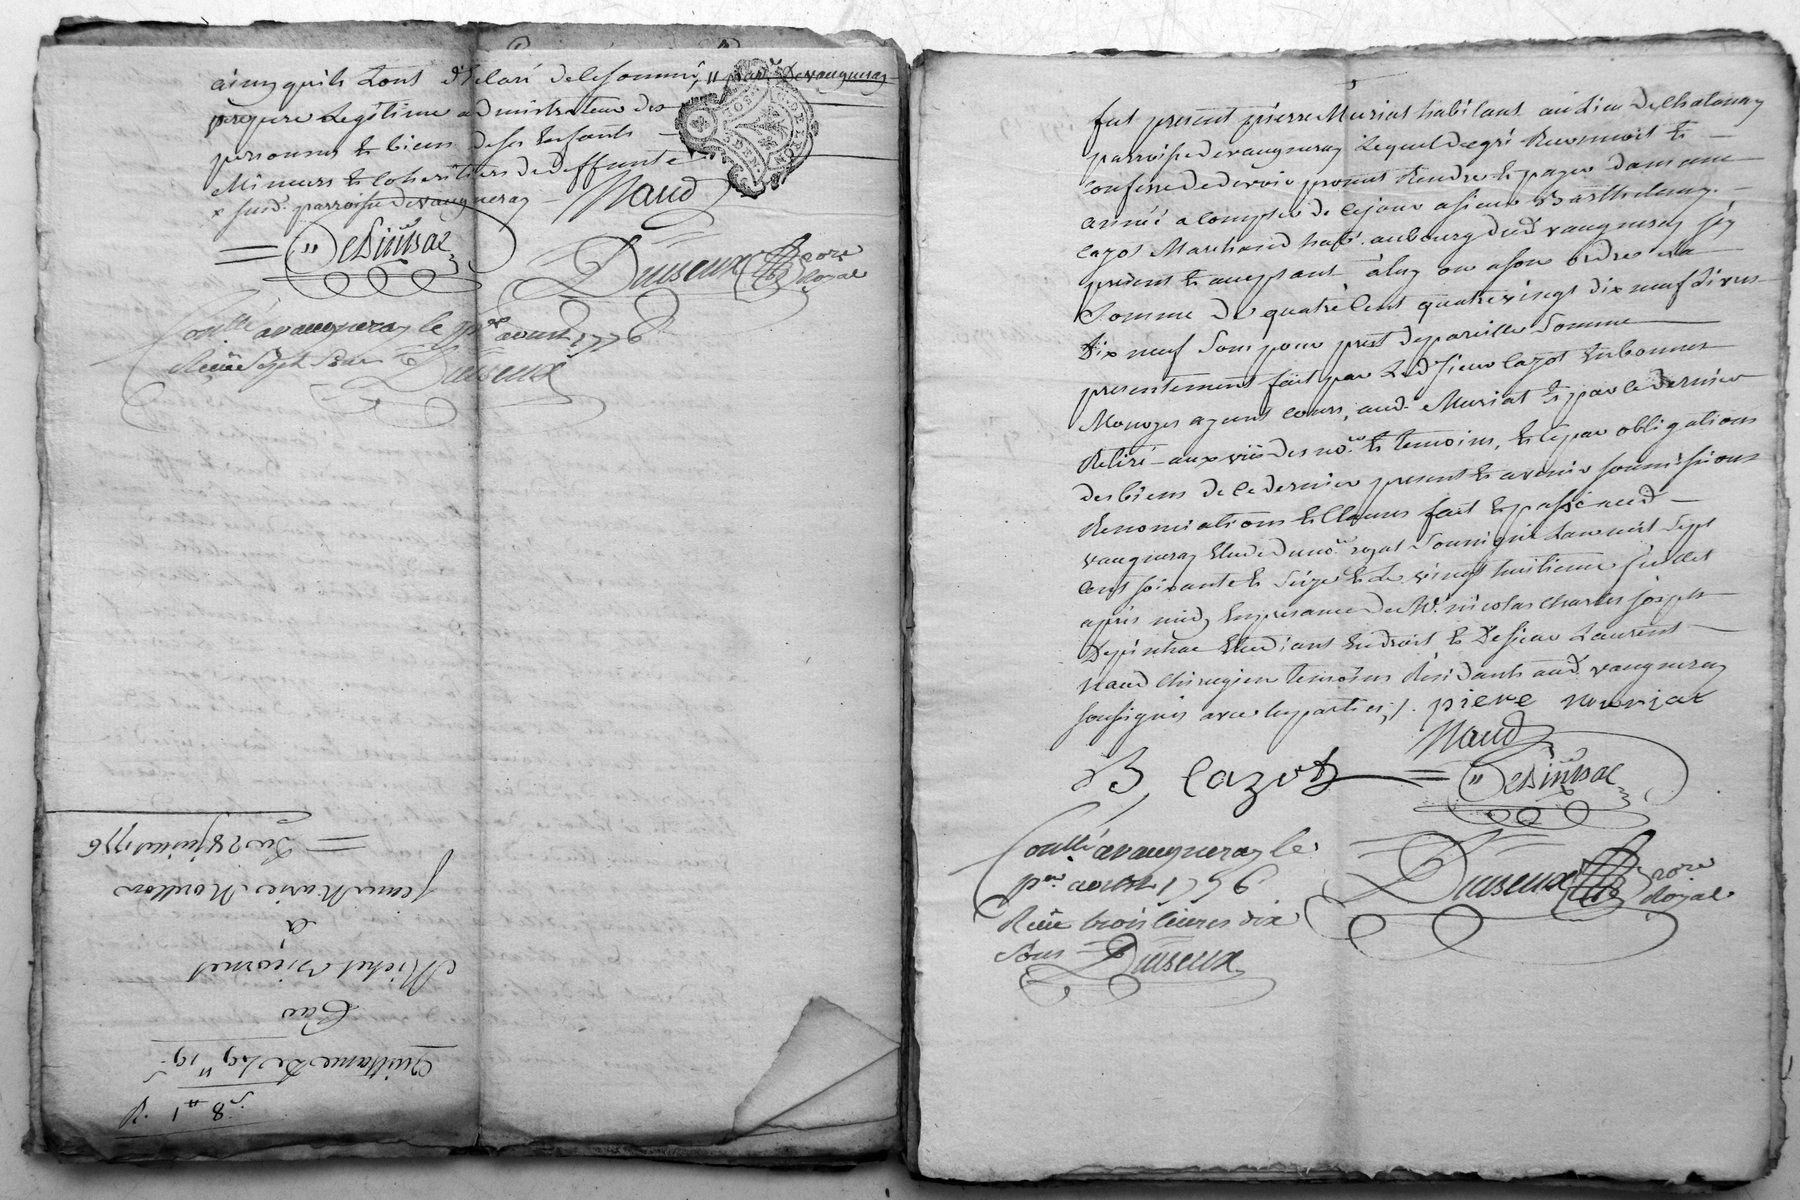 ainsy quils l'ont declaré de le sommé, // par.se de vaugneray
pere et legitime administrateur des
personnes et biens de ses enfants
Mineurs et coheritiers de deffunte
x susd. parroisse de vaugneray
Naud
= Depinhac
Duiseux Nore Royal
Conllé a vaugneray le p.er aoust 1776
Reçu sept sous
Duiseux
Du 28 juillet 1776
=
Jeanne Marie
à
Michel
Par
Quittance de
fut present pierre Muriat habitant au lieu de Chatanay
parroisse de vaugneray lequel de gré Reconnoit et
confesse de devoir promet Rendre et payer dans une
année a compter de ce jour a sieur Barthelemy
Cazot Marchand hab.t au bourg dud vaugneray icy
présent et acceptant à luy ou a son ordre la
Somme de quatre cent quatre vingt dix neuf livres
Dix neuf sous pour prest de pareille somme
presentement fait par led sieur Cazot en bonnes
Monoyes ayant cours, aud. Muriat et par ce dernier
Retiré aux vûe des no.re et temoins, et ce par obligations
des biens de ce dernier present et avenir soumissions
Renonciations et clauses fait et passé aud
vaugneray etude du no.re royal soussigné L'an mil sept
cent soixante et seize et le vingt huitieme juillet
après midy en presence de M.r nicolas Charles joseph
Depinhac etudiant en droit et de sieur Laurent
Naud Chirugien temoins Residants aud. vaugneray
soussignés avec les parties, /. piere muriat
Naud
B Cazot = Depinhac
Conllé a vaugneray le
p.er aoust 1776
Reçu trois livres dix
sous Duiseux
Duiseux Nore Royal